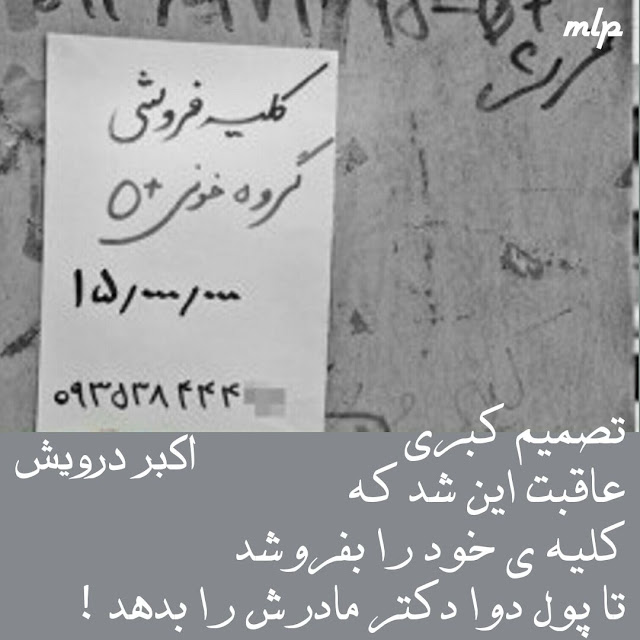 mlp
کلیه فروشی
گروه خونی O+
۱۵/۰۰۰/۰۰۰
۰۹۳۵۳۸۴۴۴
اکبر درویش
تصمیم کبری
عاقبت این شد که
کلیه ی خود را بفروشد
تا پول دوا دکتر مادرش را بدهد !